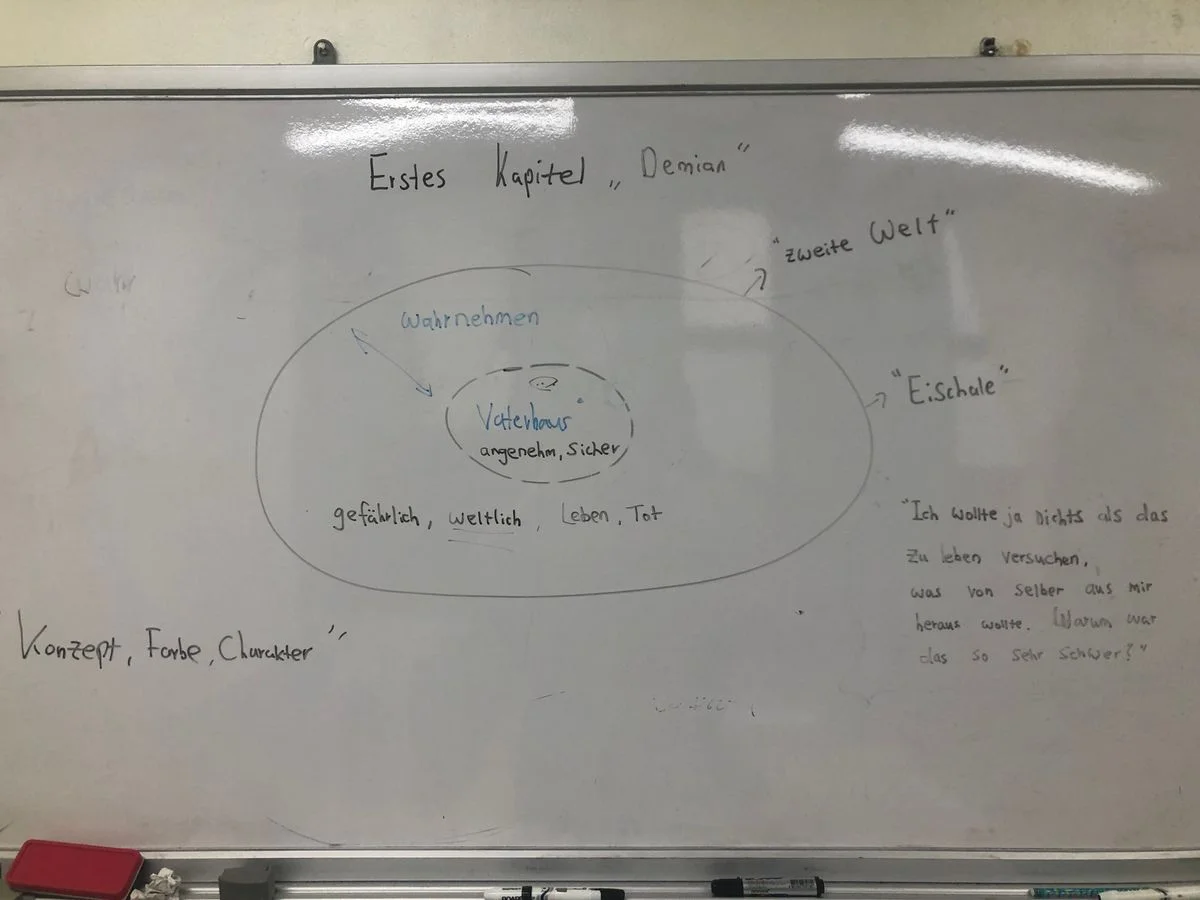 Erstes Kapitel „Demian“
"zweite Welt"
Wahrnehmen
"Eischale"
Vaterhaus
angenehm, Sicher
gefährlich, weltlich, Leben, Tot
"Ich wollte ja nichts als das
zu leben versuchen,
was von selber aus mir
heraus wollte. Warum war
das so sehr schwer?"
Konzept, Farbe, Charakter"